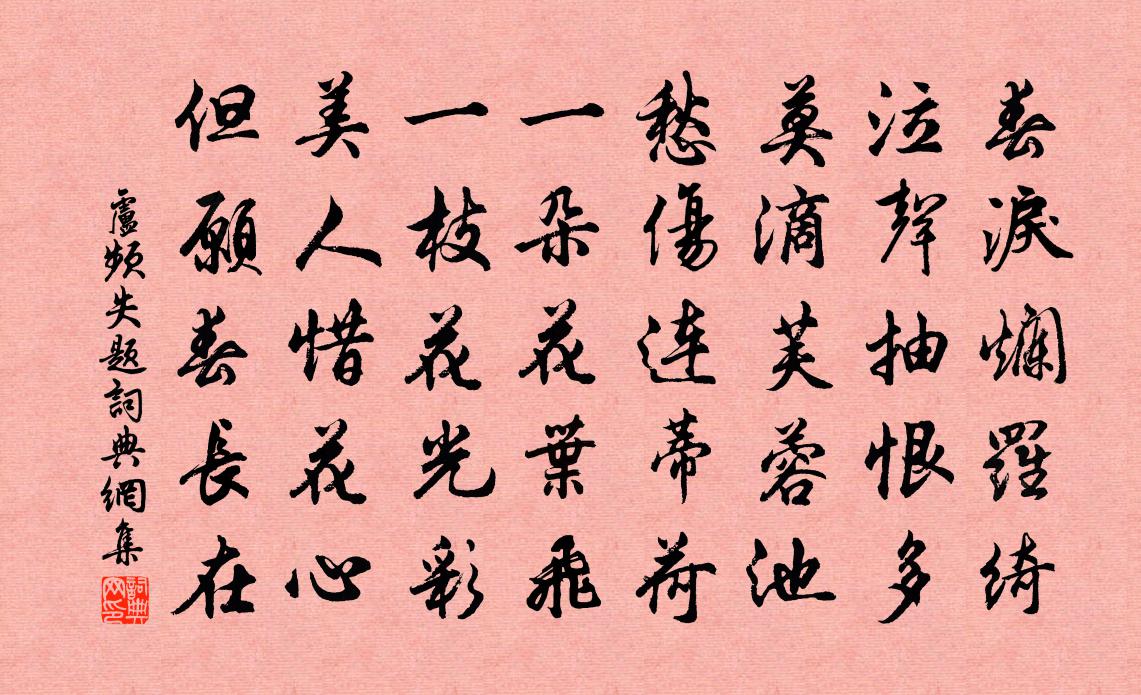 春淚爛羅綺
泣聲抽恨多
莫滴芙蓉池
愁傷連蒂荷
一朵花葉飛
一枝花光彩
美人惜花心
但願春長在
盧頻失題詞典網集
詞典網印